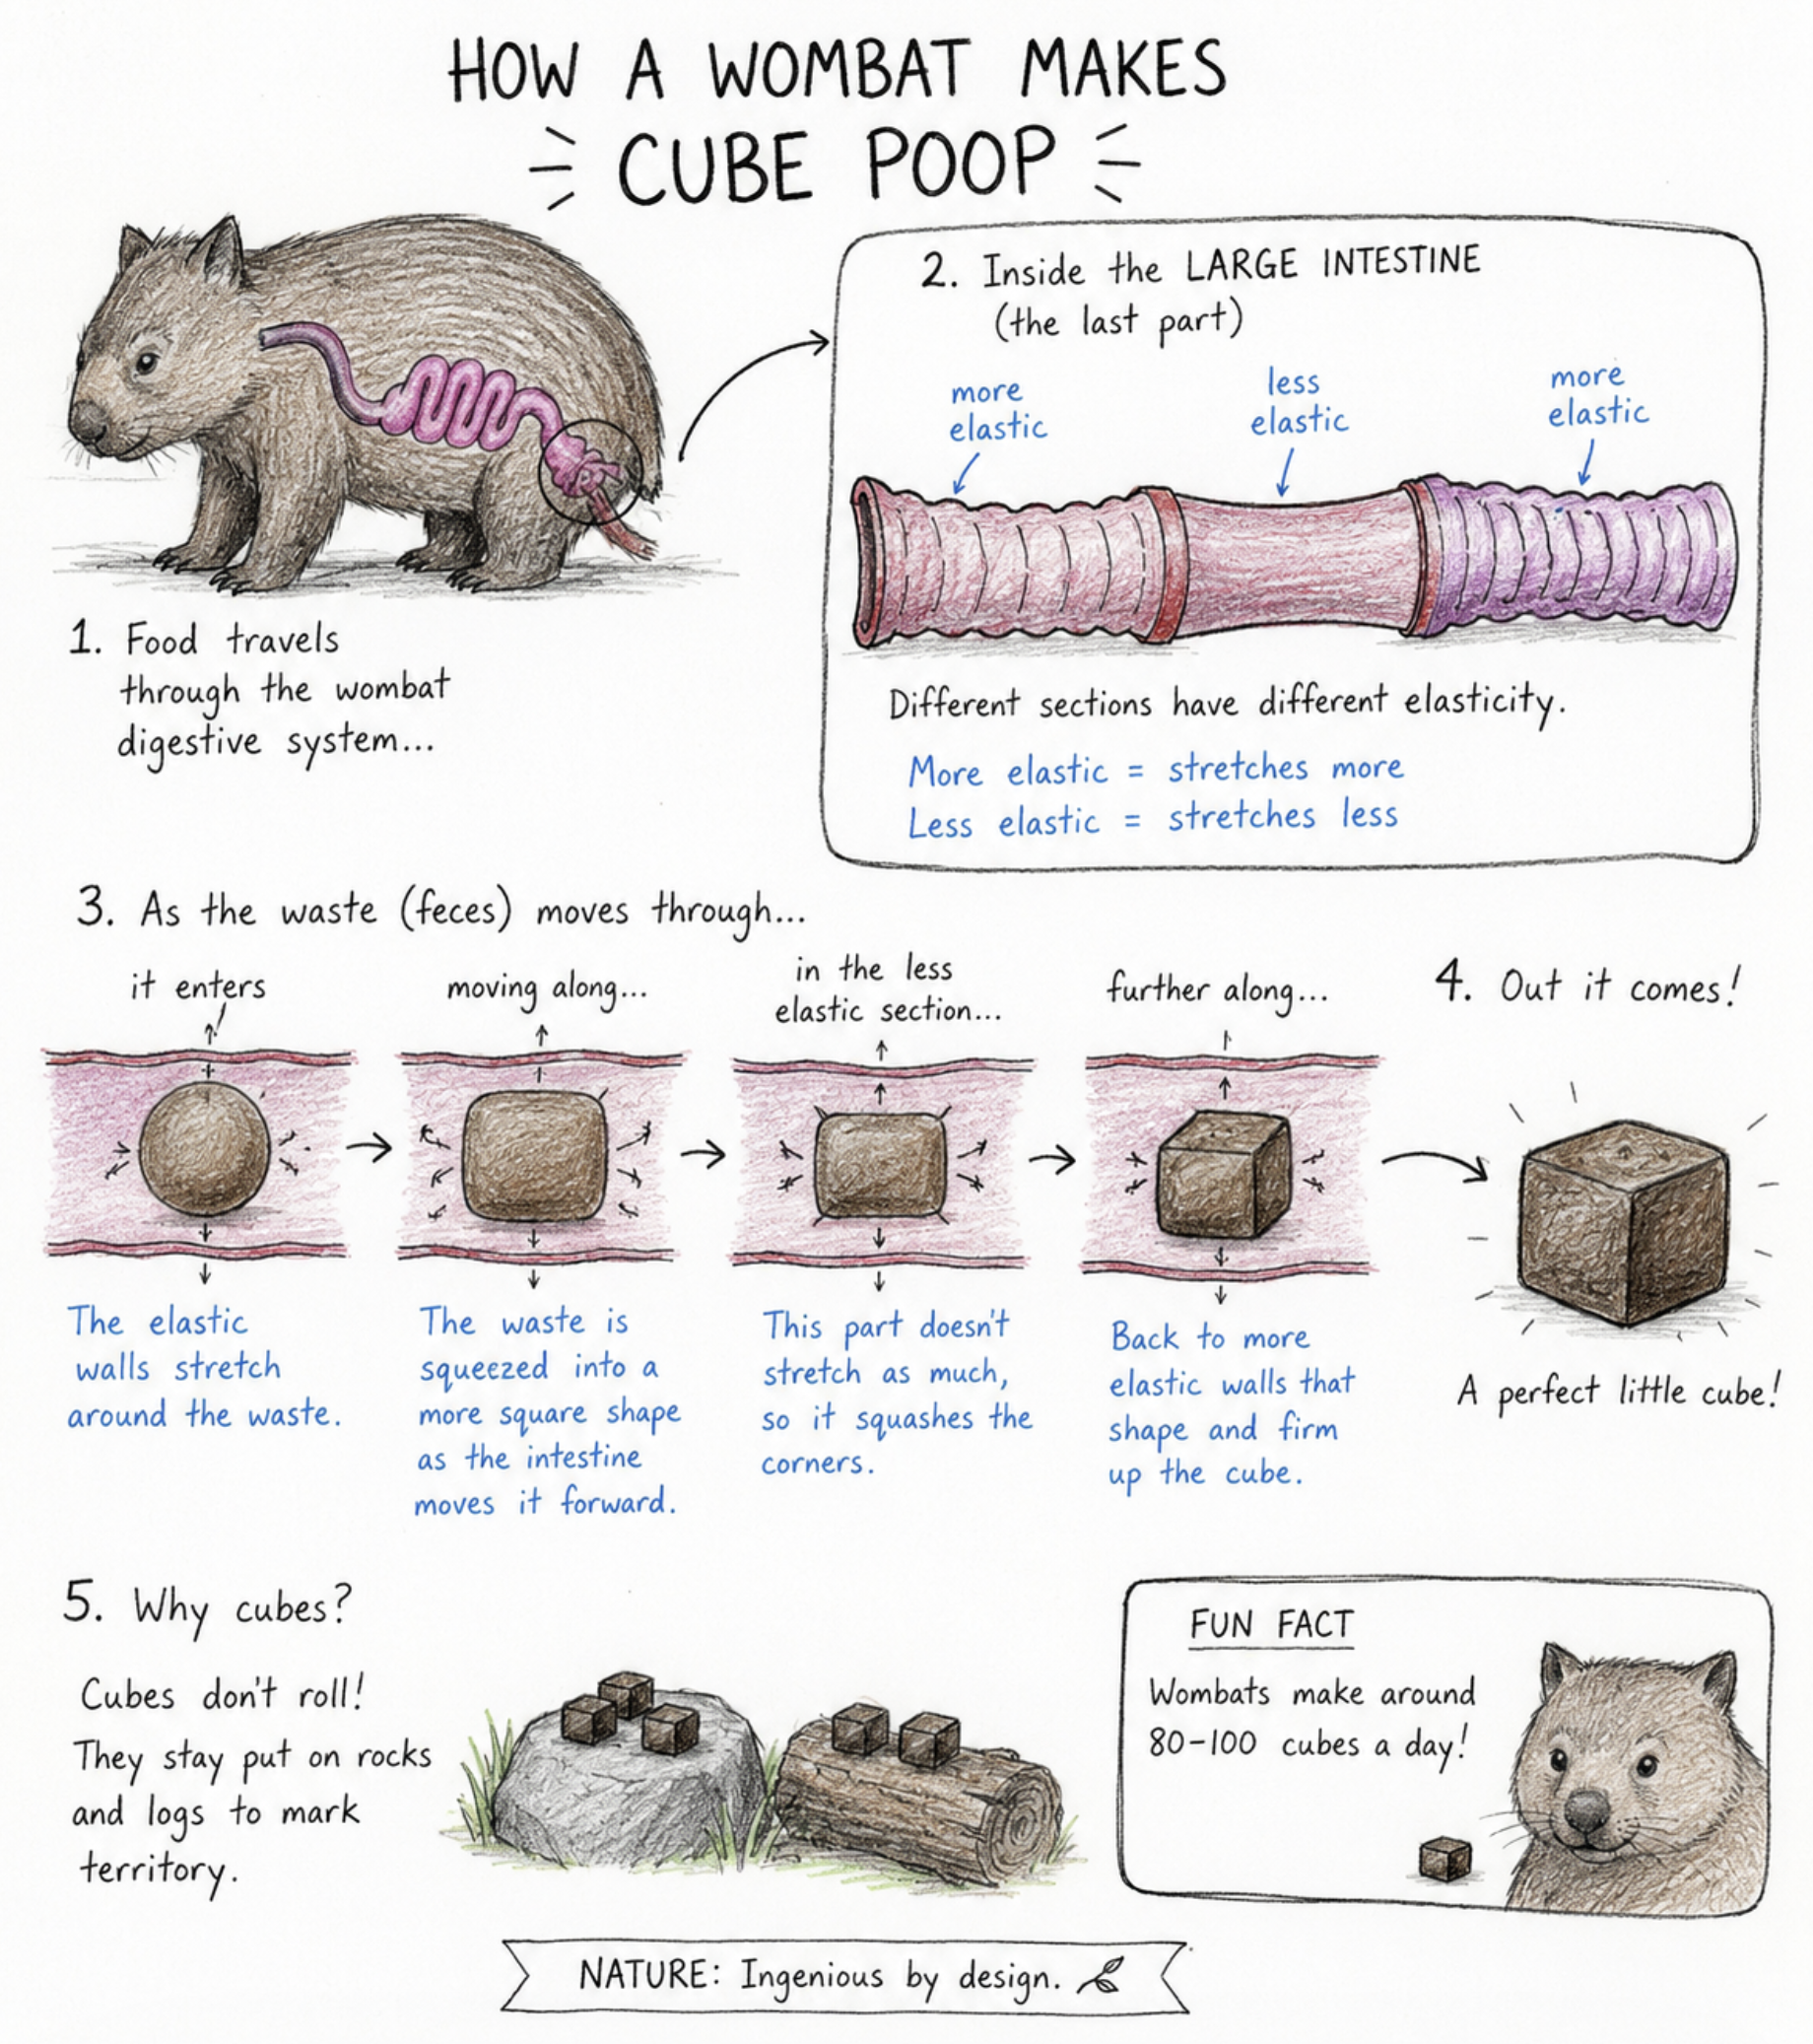 HOW A WOMBAT MAKES
CUBE POOP
1. Food travels
through the wombat
digestive system...
2. Inside the LARGE INTESTINE
(the last part)
more
elastic
less
elastic
more
elastic
Different sections have different elasticity.
More elastic = stretches more
Less elastic = stretches less
3. As the waste (feces) moves through...
it enters
The elastic
walls stretch
around the waste.
moving along...
The waste is
squeezed into a
more square shape
as the intestine
moves it forward.
in the less
elastic section...
This part doesn't
stretch as much,
so it squashes the
corners.
further along...
Back to more
elastic walls that
shape and firm
up the cube.
4. Out it comes!
A perfect little cube!
5. Why cubes?
Cubes don't roll!
They stay put on rocks
and logs to mark
territory.
FUN FACT
Wombats make around
80-100 cubes a day!
NATURE: Ingenious by design.